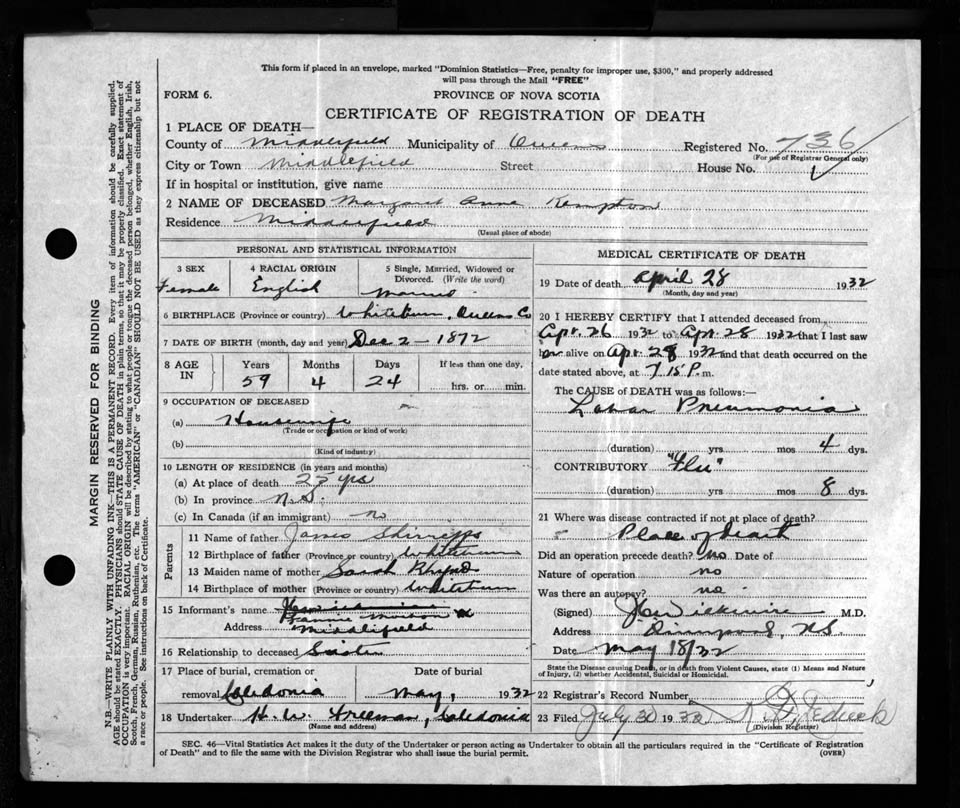 This form if placed in an envelope, marked "Dominion Statistics—Free, penalty for improper use, $300," and properly addressed
will pass through the Mail "FREE"
FORM 6.
PROVINCE OF NOVA SCOTIA
CERTIFICATE OF REGISTRATION OF DEATH
1 PLACE OF DEATH—
County of Middlefield Municipality of Queens Registered No. 736
(For use of Registrar General only)
City or Town Middlefield Street House No.
If in hospital or institution, give name
2 NAME OF DECEASED Margaret Anne Kempton
Residence Middlefield
(Usual place of abode)
PERSONAL AND STATISTICAL INFORMATION
3 SEX
Female
4 RACIAL ORIGIN
English
5 Single, Married, Widowed or
Divorced. (Write the word)
Married
6 BIRTHPLACE (Province or country) Whiteburn, Queens Co
7 DATE OF BIRTH (month, day and year) Dec 2 - 1872
8 AGE
IN
Years
59
Months
4
Days
24
If less than one day,
hrs. or min.
9 OCCUPATION OF DECEASED
(a) Housewife
(Trade or occupation or kind of work)
(b)
(Kind of industry)
10 LENGTH OF RESIDENCE (in years and months)
(a) At place of death 25 yrs
(b) In province N.S.
(c) In Canada (if an immigrant) no
Parents
11 Name of father James
12 Birthplace of father (Province or country) Whiteburn
13 Maiden name of mother Sarah Rhynd
14 Birthplace of mother (Province or country) Whiteburn
15 Informant's name
Address Middlefield
16 Relationship to deceased Sister
17 Place of burial, cremation or Date of burial
removal Caledonia May, 1932
18 Undertaker H. W. Freeman, Caledonia
(Name and address)
MEDICAL CERTIFICATE OF DEATH
19 Date of death April 28 1932
(Month, day and year)
20 I HEREBY CERTIFY that I attended deceased from
Apr. 26 1932 to Apr. 28 1932 that I last saw
her alive on Apr. 28 1932 and that death occurred on the
date stated above, at 7.15 P. m.
The CAUSE of DEATH was as follows:
Lobar Pneumonia
(duration) yrs mos 4 dys.
CONTRIBUTORY "Flu"
(duration) yrs. mos 8 dys.
21 Where was disease contracted if not at place of death?
Place of death
Did an operation precede death? no Date of
Nature of operation no
Was there an autopsy? no
(Signed) M.D.
Address N.S.
Date May 18/32
State the Disease causing Death, or in death from Violent Causes, state (1) Means and Nature
of Injury, (2) whether Accidental, Suicidal or Homicidal.
22 Registrar's Record Number
23 Filed July 30 1932
(Division Registrar)
SEC. 46—Vital Statistics Act makes it the duty of the Undertaker or person acting as Undertaker to obtain all the particulars required in the "Certificate of Registration
of Death" and to file the same with the Division Registrar who shall issue the burial permit. (OVER)
MARGIN RESERVED FOR BINDING
N.B.—WRITE PLAINLY WITH UNFADING INK—THIS IS A PERMANENT RECORD. Every item of information should be carefully supplied.
AGE should be stated EXACTLY. PHYSICIANS should STATE CAUSE OF DEATH in plain terms, so that it may be properly classified. Exact statement of
OCCUPATION is very important. RACIAL ORIGIN will be described by stating to what people or tongue the deceased person belonged, whether English, Irish,
Scotch, French, German, Russian, Ruthenian, etc. The terms "AMERICAN" or "CANADIAN" SHOULD NOT BE USED as they express citizenship but not
a race or people. See instructions on back of Certificate.